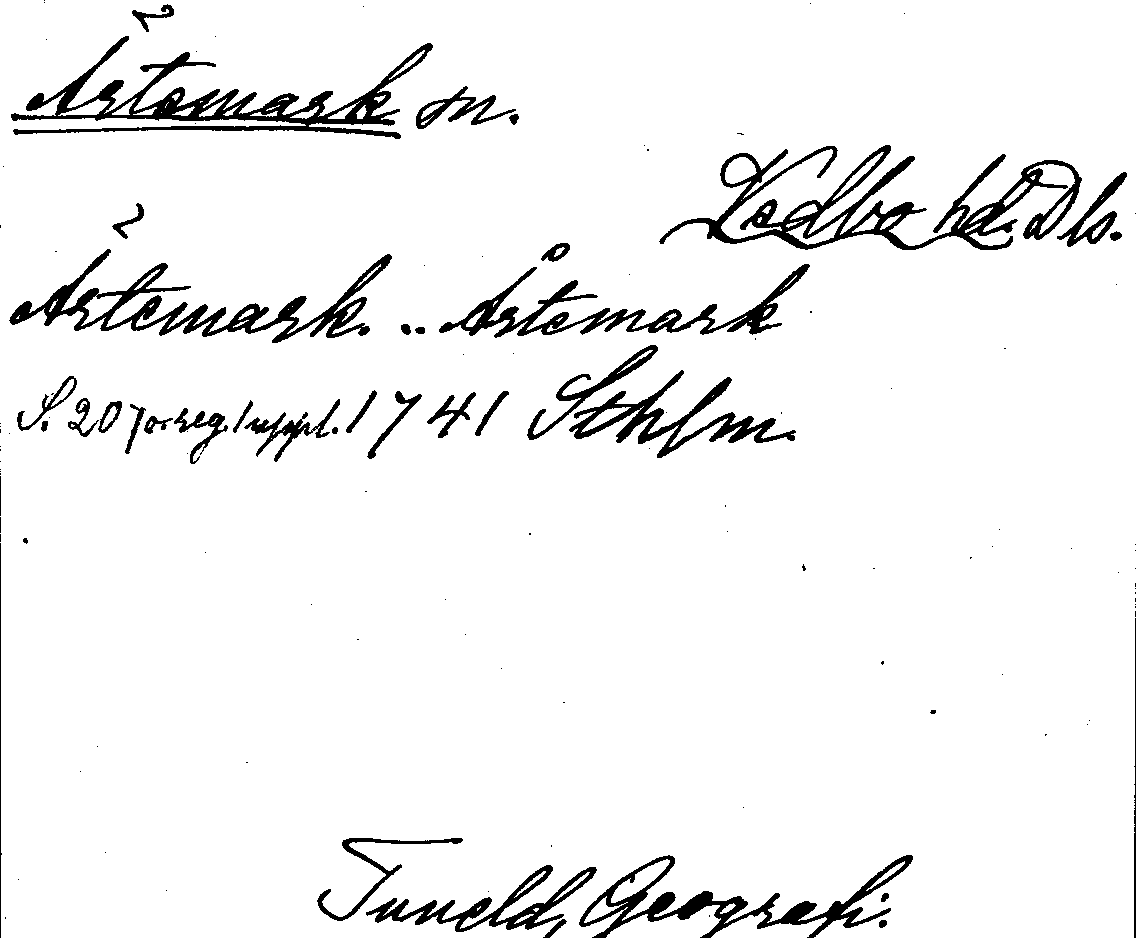 Ärtemark sn.
Vedbo hd. Dls.
Ärtemark. .. Årtemark
S. 20 1741 Sthlm.
Tuneld, Geografi.